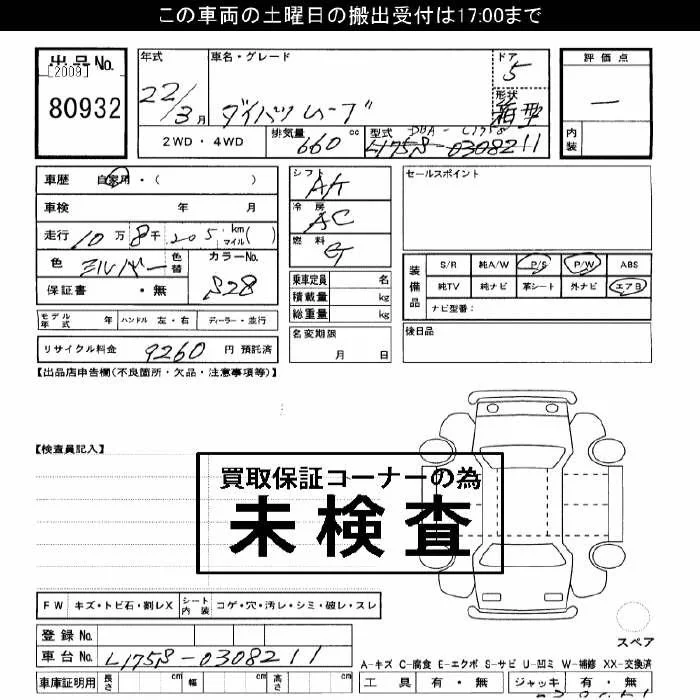 この車両の土曜日の搬出受付は17:00まで
出品No.
[2009]
80932
年式
22/3月
車名・グレード
ダイハツ ムーブ
ドア
5
形状
箱型
2WD・4WD
排気量 660 cc
型式 DBA-L175S
L175S-0308211
評価点
ー
内装
車歴 自家用・( )
車検 年 月
走行 10万8千205 km マイル( )
色 シルバー 色替
カラーNo.
S28
保証書 ・無
シフト AT
冷房 AC
燃料 G
乗車定員 名
積載量 kg
総重量 kg
セールスポイント
装備品
S/R 純A/W P/S P/W ABS
純TV 純ナビ 革シート 外ナビ エアB
ナビ型番:
モデル年式 年 ハンドル 左・右 ディーラー・並行
名変期限
月 日
後日品
リサイクル料金 9260 円 預託済
【出品店申告欄(不良箇所・欠品・注意事項等)】
【検査員記入】
買取保証コーナーの為
未検査
FW キズ・トビ石・割レX シート内装 コゲ・穴・汚レ・シミ・破レ・スレ
登録No.
車台No. L175S-0308211
スペア
A-キズ C-腐食 E-エクボ S-サビ U-凹ミ W-補修 XX-交換済
車庫証明用 長さ cm 幅 cm 高さ cm
工具 有・無 ジャッキ 有・無